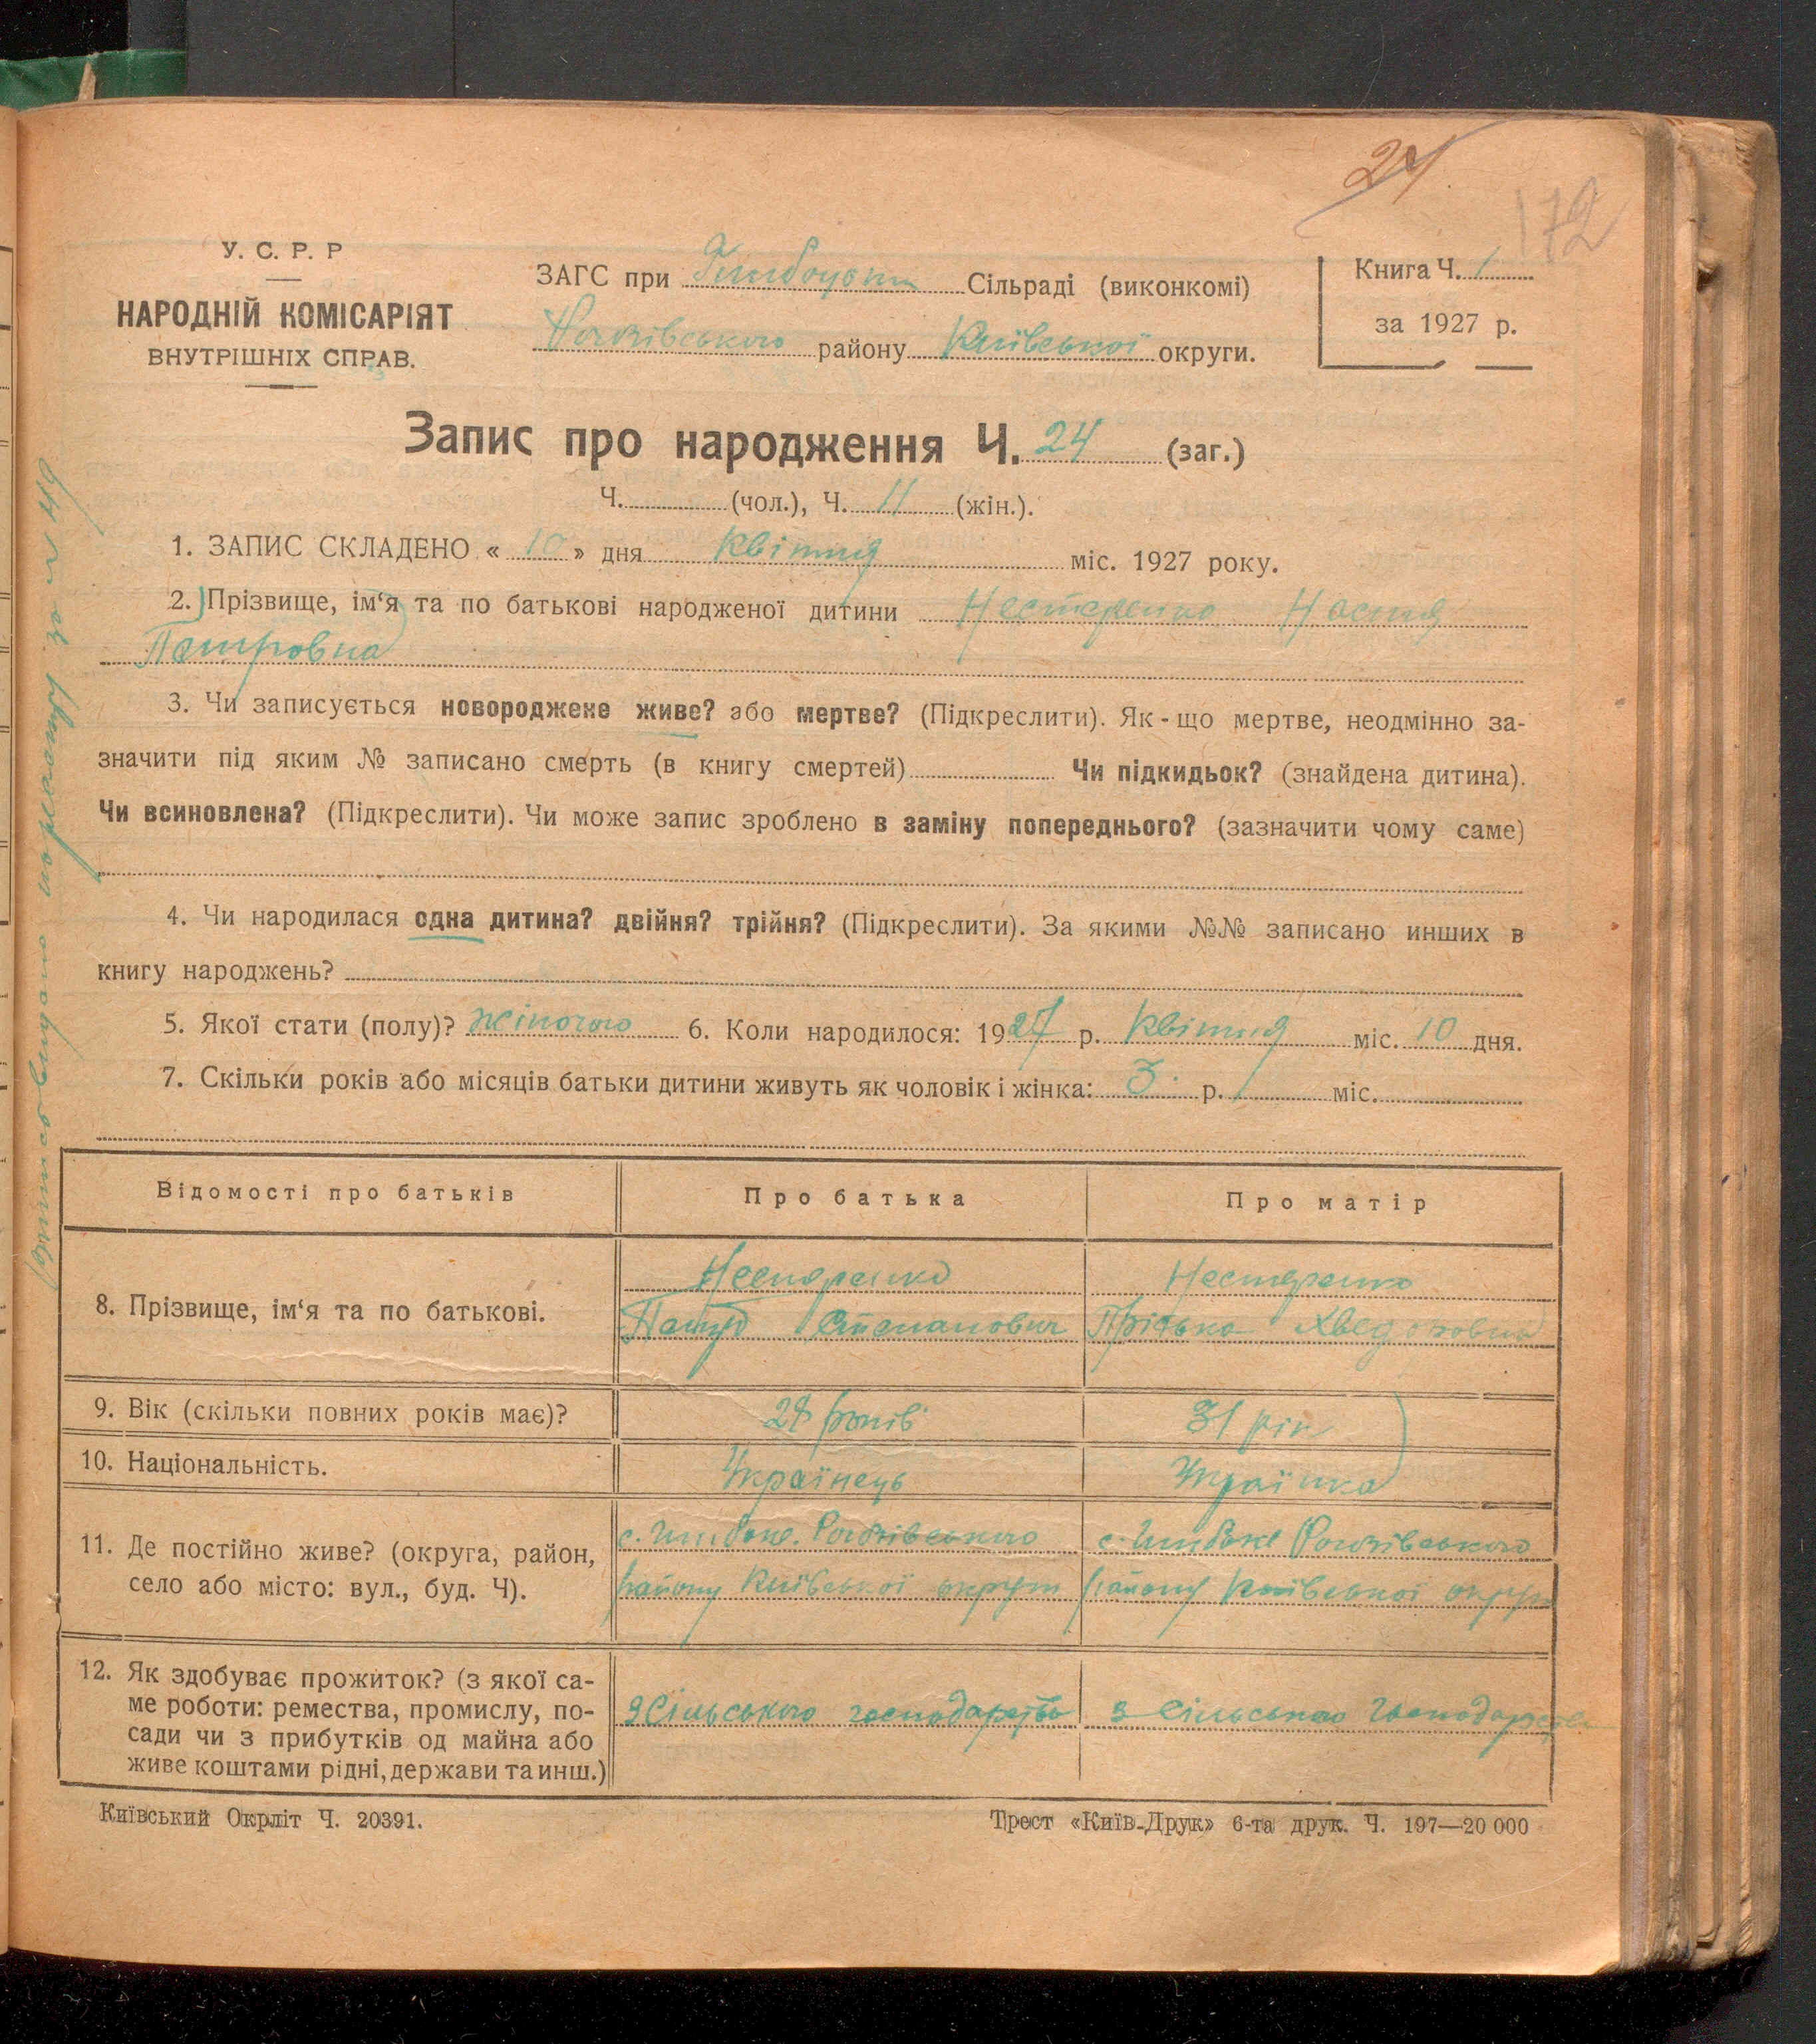 24
172
У. С. Р. Р
НАРОДНІЙ КОМІСАРІЯТ
ВНУТРІШНІХ СПРАВ.
ЗАГС при Сільраді (виконкомі)
Рогозівського району Київської округи.
Книга Ч. 1
за 1927 р.
Запис про народження Ч. 24 (заг.)
Ч. (чол.), Ч. 11 (жін.).
1. ЗАПИС СКЛАДЕНО « 10 » дня Квітня міс. 1927 року.
2. Прізвище, ім‘я та по батькові народженої дитини Нестеренко Настя
Петровна
3. Чи записується новороджене живе? або мертве? (Підкреслити). Як-що мертве, неодмінно за-
значити під яким № записано смерть (в книгу смертей) Чи підкидьок? (знайдена дитина).
Чи всиновлена? (Підкреслити). Чи може запис зроблено в заміну попереднього? (зазначити чому саме)
4. Чи народилася одна дитина? двійня? трійня? (Підкреслити). За якими №№ записано инших в
книгу народжень?
5. Якої стати (полу)? жіночого 6. Коли народилося: 1927 р. Квітня міс. 10 дня.
7. Скільки років або місяців батьки дитини живуть як чоловік і жінка: 3 р. міс.
Відомості про батьків
Про батька
Про матір
8. Прізвище, ім‘я та по батькові.
Нестеренко
Степанович
Нестеренко
Хведоровна
9. Вік (скільки повних років має)?
28 років
31 рік
10. Національність.
Українець
Українка
11. Де постійно живе? (округа, район,
село або місто: вул., буд. Ч).
с. Рогозівського
району Київської округи
с. Рогозівського
району Київської округи
12. Як здобуває прожиток? (з якої са-
ме роботи: ремества, промислу, по-
сади чи з прибутків од майна або
живе коштами рідні, держави та инш.)
з Сільського господарства
з Сільського господарства
Київський Окрліт Ч. 20391.
Трест «Київ-Друк» 6-та друк. Ч. 197—20 000